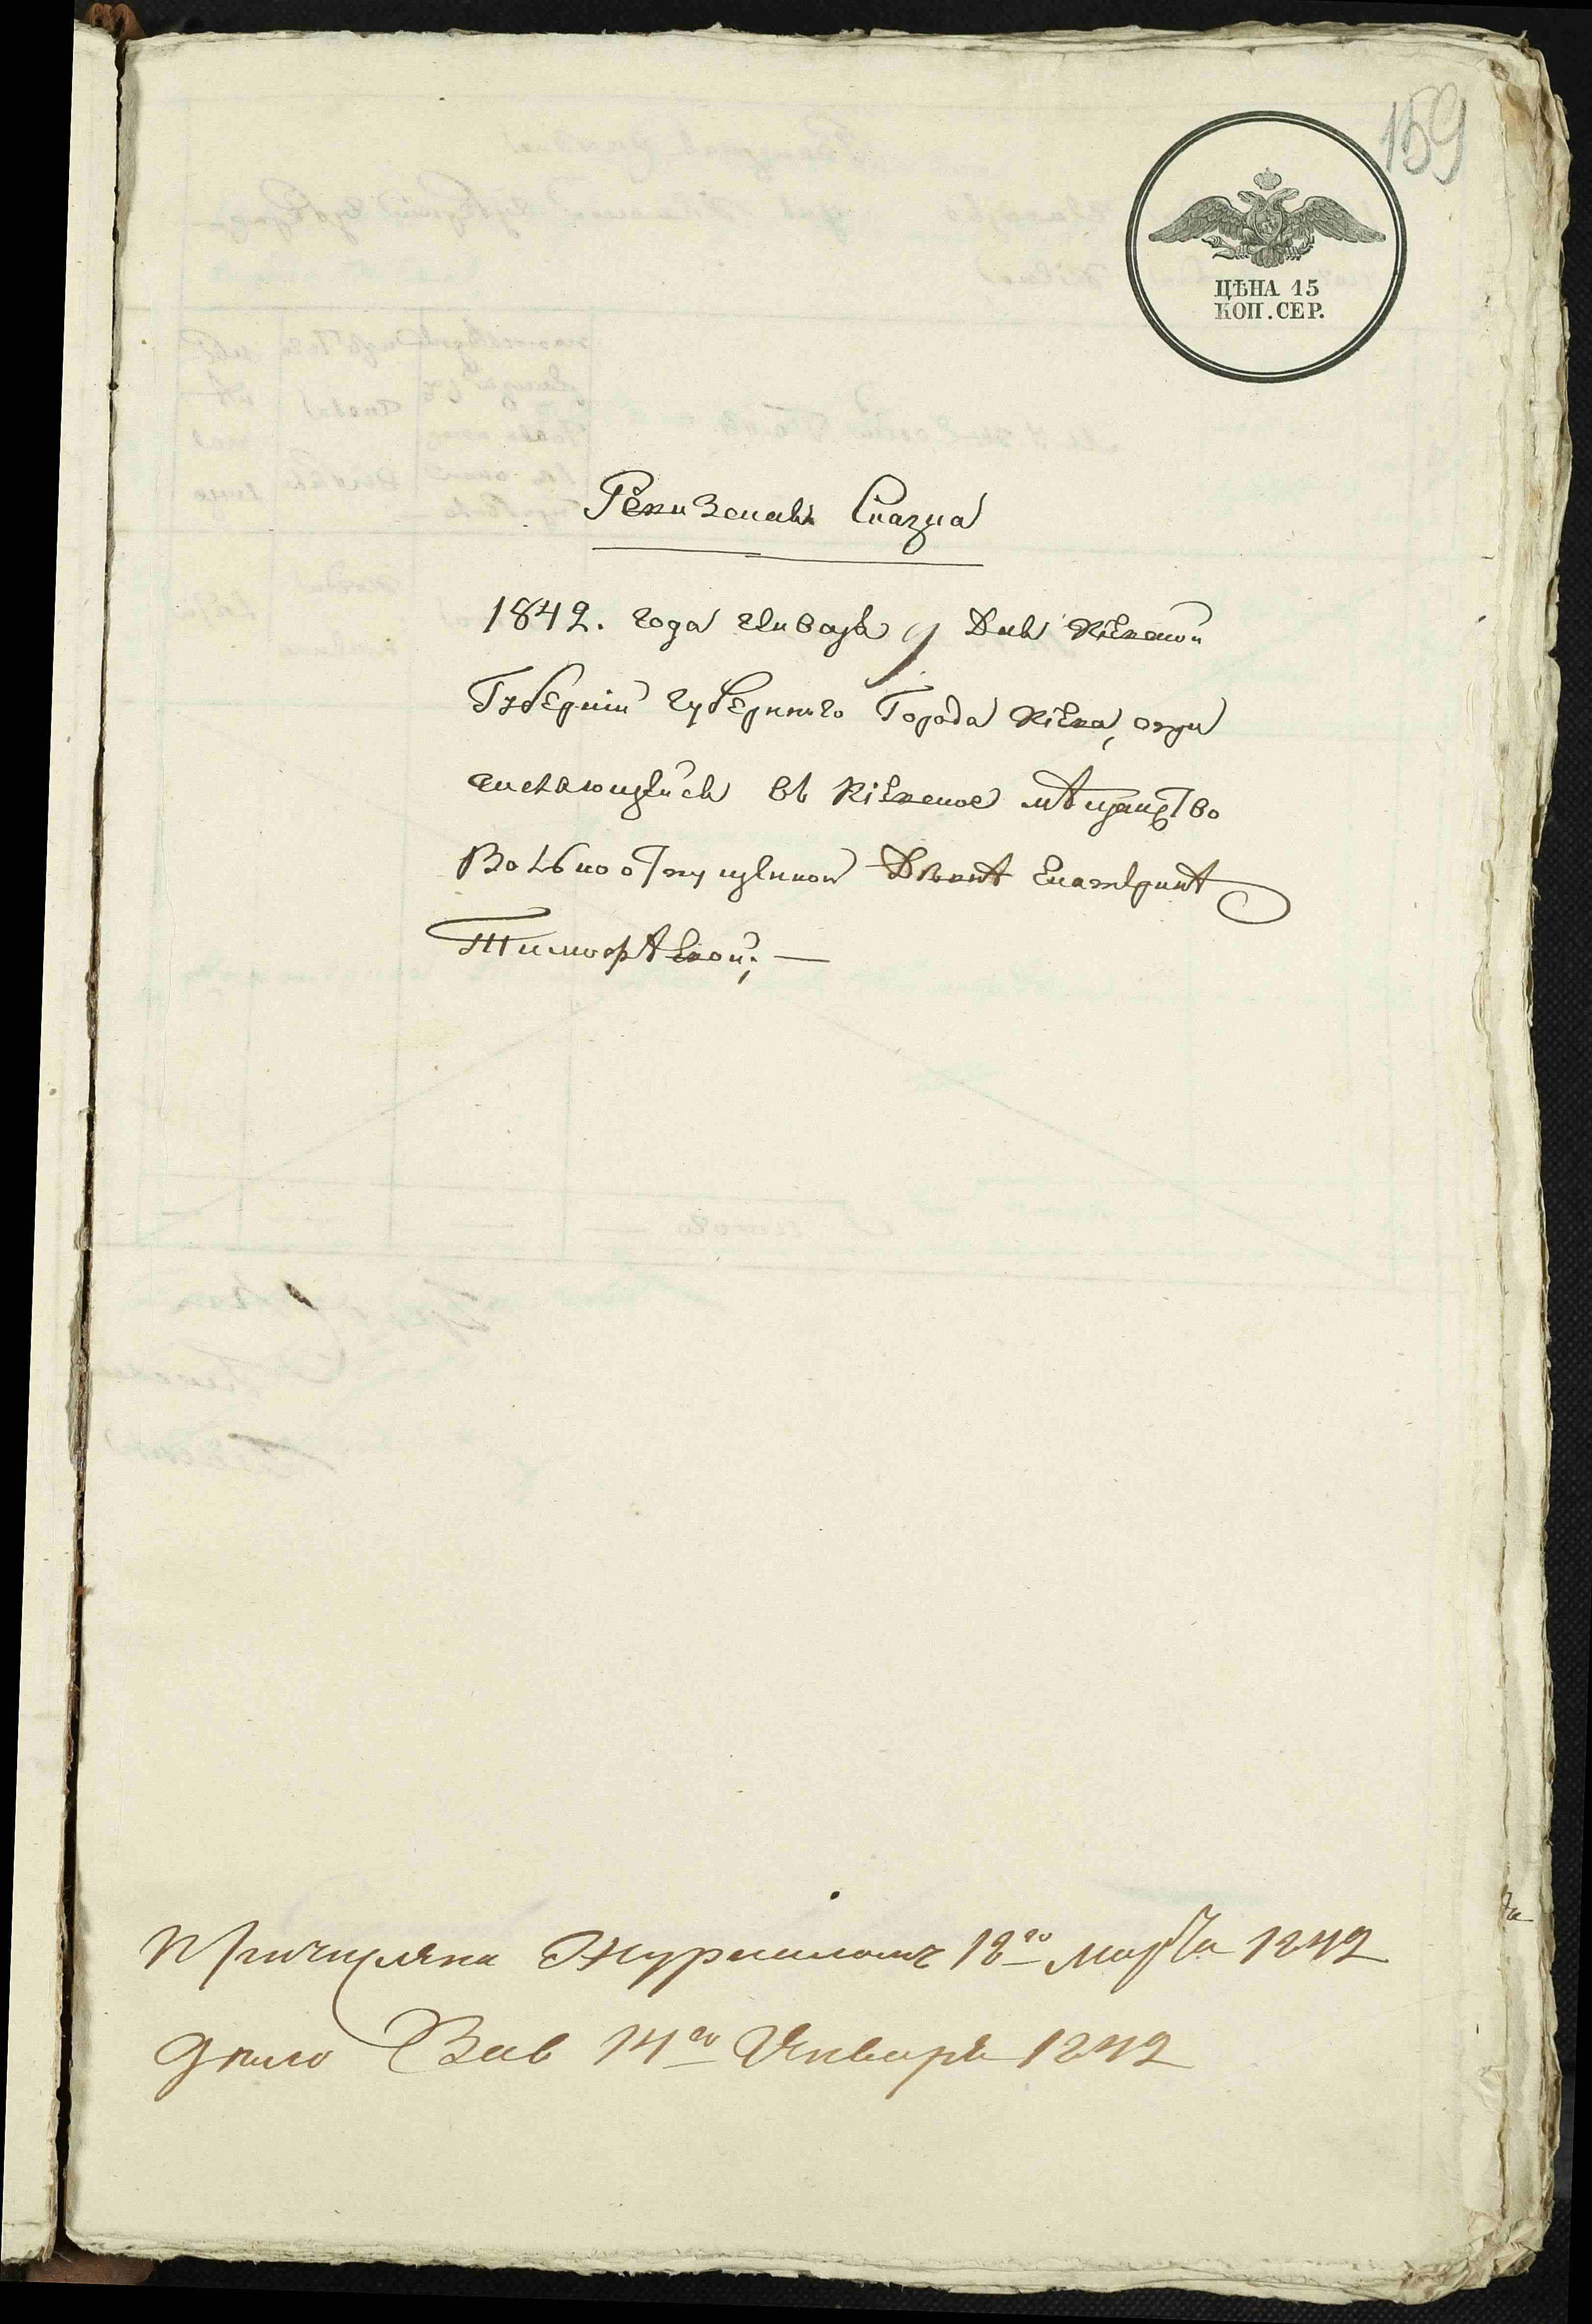 159
ЦѢНА 15
КОП. СЕР.
Ревизская Сказка
1842. года Января 9 дня Кіевской
Губерніи губернского Города Кіева, о при
числяющейся въ Кіевское мѣщанство
Вольноотпущенной Дѣвкѣ Екатеринѣ
Тимофѣевой;
Причислена Журналомъ 12го Марта 1842
дѣло 14го Января 1842